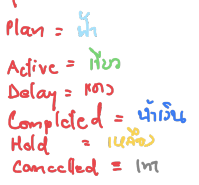 Plan = ฟ้า
Active = เขียว
Delay = แดง
Completed = น้ำเงิน
Hold = เหลือง
Cancelled = เทา